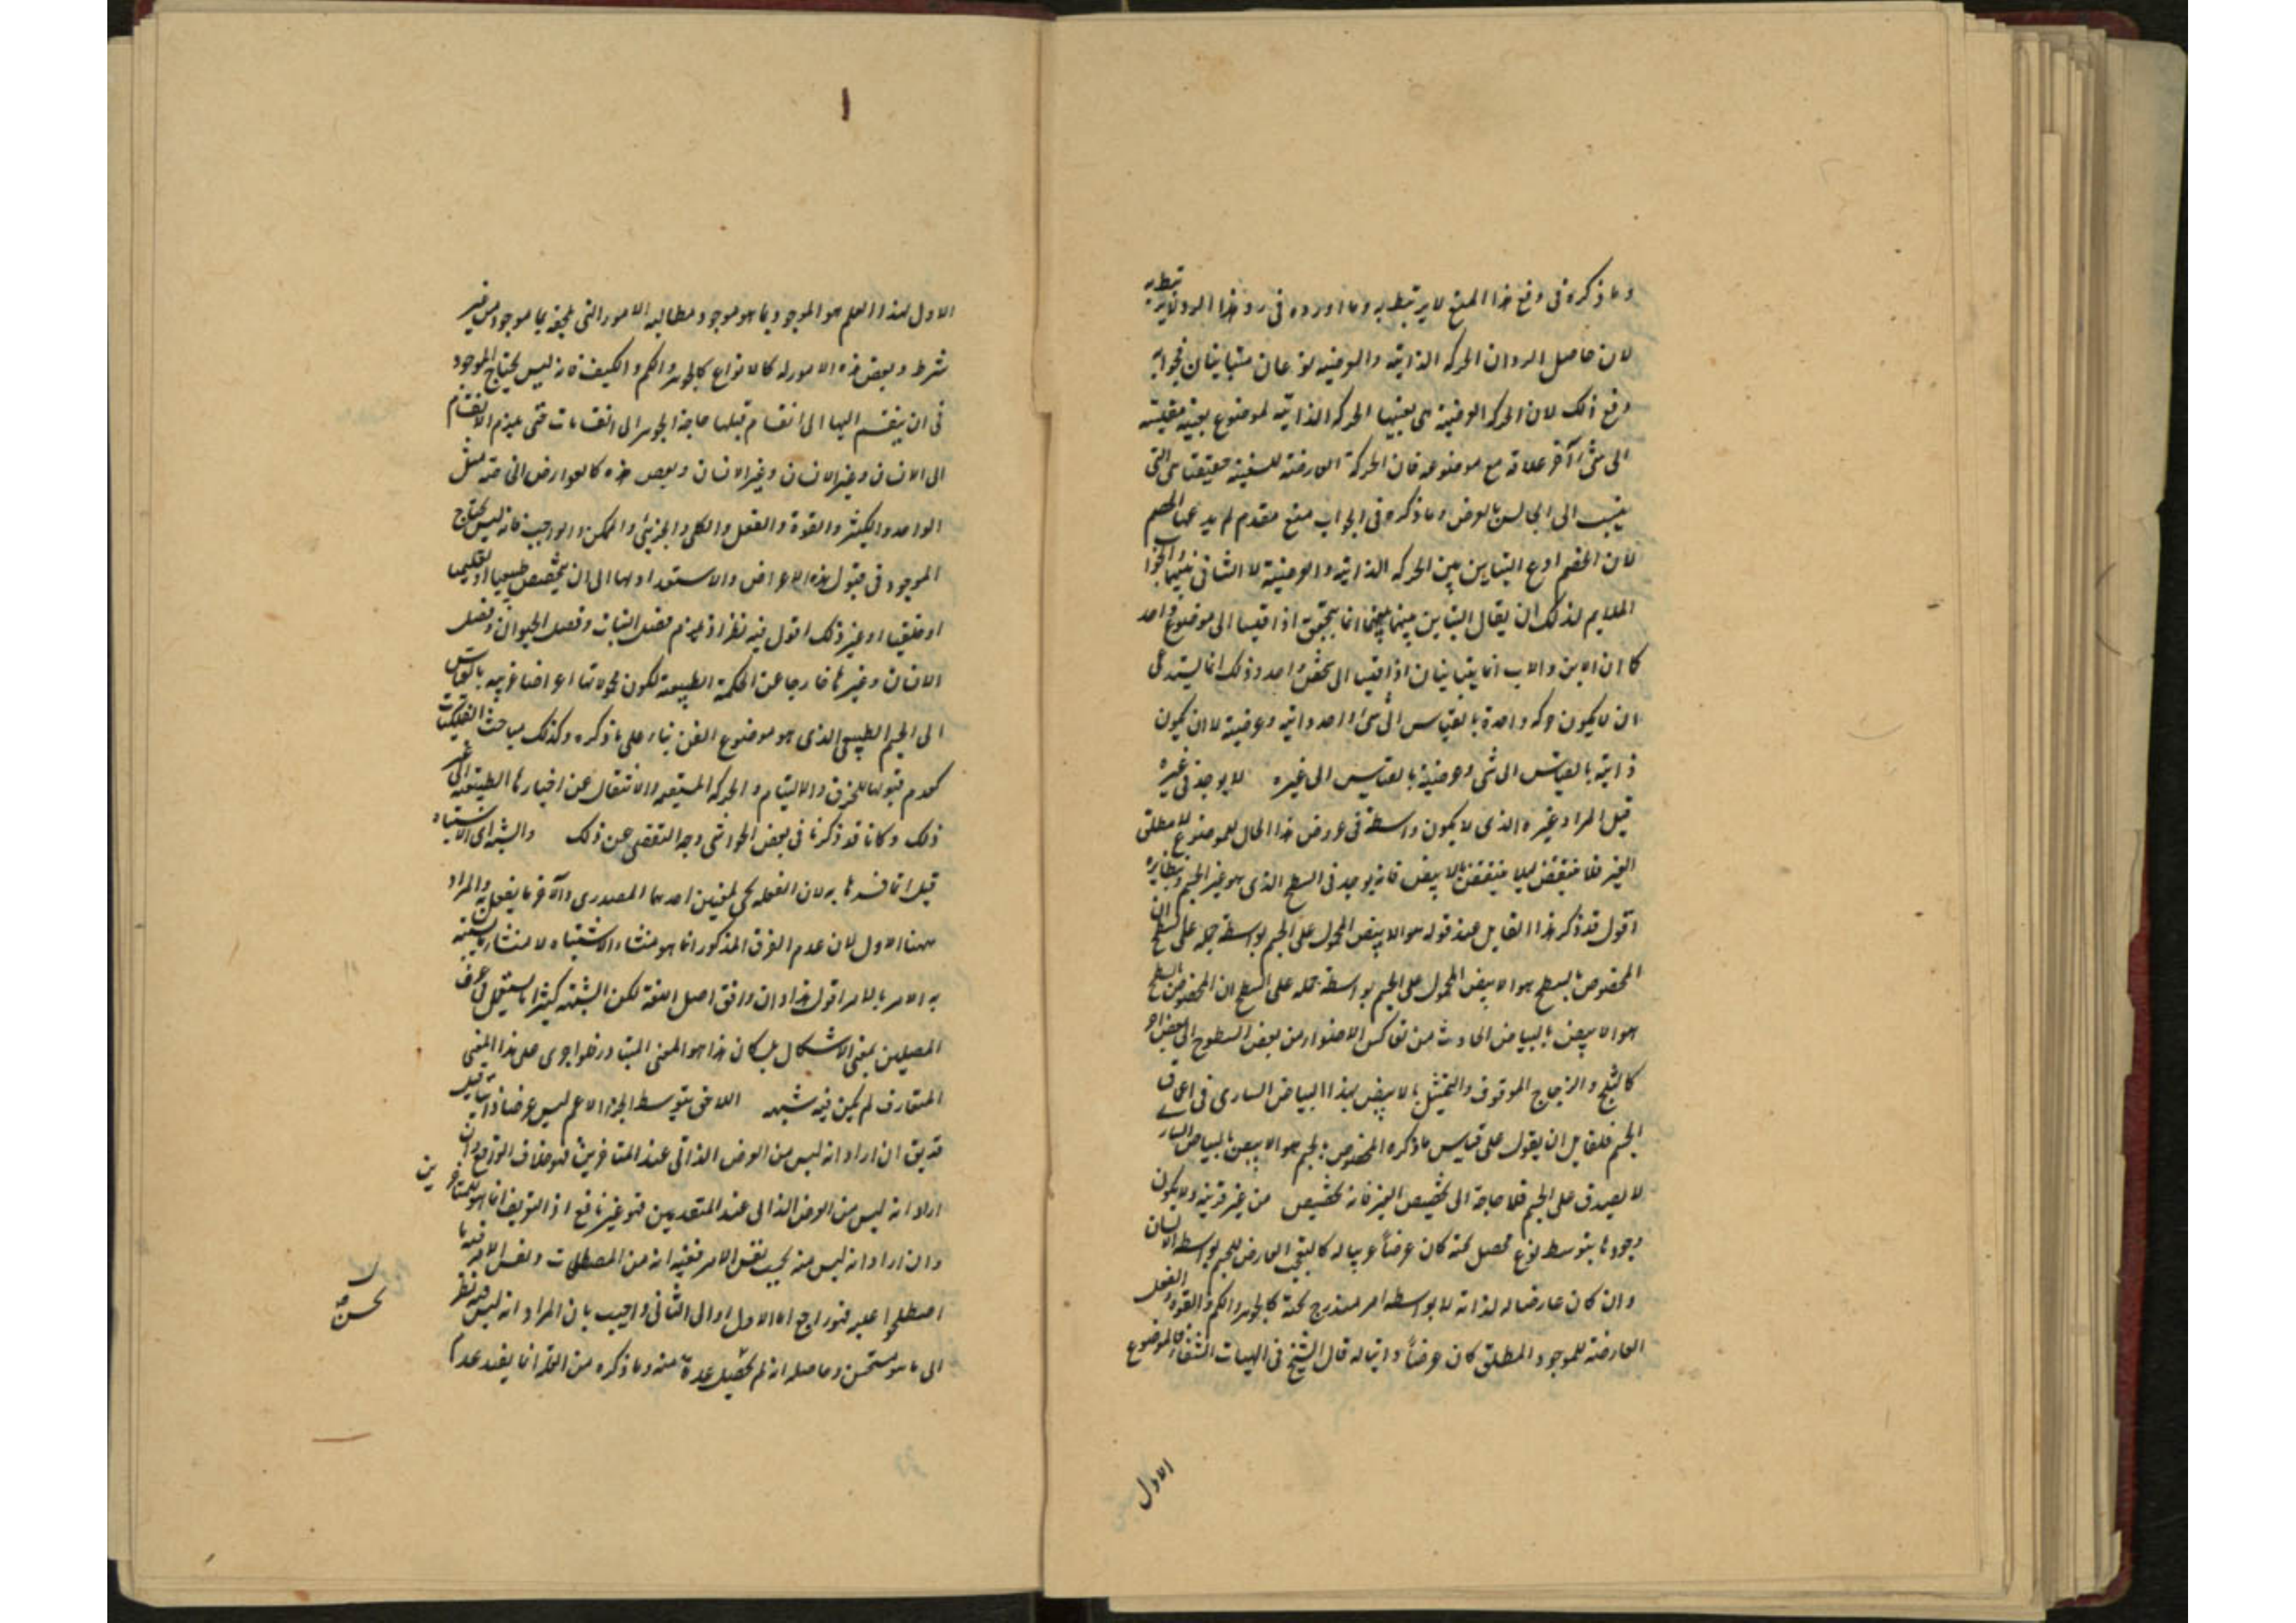 وما ذكره فى دفع هذا المنع لا يرتبط به وما اورده فى رد هذا الرد لا يرتبط به
لان حاصل الرد ان الحركة الذاتية والعرضية نوعان متباينان فجوابه
دفع ذلك لان الحركة العرضية هى بعينها الحركة الذاتية لموضوع بعينه مقيسة
الى شئ آخر له علاقة مع موضوعه فان الحركة العارضة للسفينة حقيقتا هى التى
ينسب الى الجالس بالعرض وما ذكره فى الجواب منع مقدمة لم يدعها الخصم
لان الخصم ادعى التباين بين الحركة الذاتية والعرضية لا التنافى بينهما والجواب
الملايم لذلك ان يقال التباين بينهما انما يتحقق اذا قيسا الى موضوع واحد
كما ان الابن والاب انما يتباينان اذا قيسا الى شخص واحد وذلك انما يستدعى
ان لا يكون حركة واحدة بالقياس الى شئ واحد ذاتية وعرضية لا ان يكون
ذاتية بالقياس الى شئ وعرضية بالقياس الى غيره لا يوجد فى غيره
قيل المراد غيره الذى لا يكون واسطة فى عروض هذا الحال للموضوع لا مطلق
الغير فلا ينتقض بالابيض فانه يوجد فى السطح الذى هو غير الجسم ونظايره
اقول قد ذكر هذا القايل عند قوله هو الابيض المحمول على الجسم بواسطة حمله على السطح ان
المخصوص بالسطح هو الابيض المحمول على الجسم بواسطة حمله على السطح ان المخصوص بالسطح
هو الابيض بالبياض الحادث من تعاكس الاضواء من بعض السطوح الى بعض آخر
كالثلج والزجاج المدقوق والتمثيل بالابيض بهذا البياض السارى فى اعماق
الجسم فلقايل ان يقول على قياس ما ذكره المخصوص بالجسم هو الابيض بالبياض السارى
لا يصدق على الجسم فلا حاجة الى تخصيص الغير فانه تخصيص من غير قرينة ولا يكون
وجودها بتوسط نوع محصل لمنه كان عرضاً غريبا له كالتعجب العارض للجسم بواسطة الانسان
وان كان عارضا له لذاته لا بواسطة امر مندرج تحته كالجوهر والكم والقوة والفعل
العارضة للموجود المطلق كان عرضاً ذاتيا له قال الشيخ فى الهيات الشفاء الموضوع
الاول
الاول لهذا العلم هو الموجود بما هو موجود ومطالبه الامور التى تلحقه بما هو موجود من غير
شرط وبعض هذه الامور له كالانواع كالجوهر والكم والكيف فانه ليس يحتاج الموجود
فى ان ينقسم اليها الى انقسام قبلها حاجة الجوهر الى انقسامات حتى يلزم الانقسام
الى الانسان وغير الانسان وبعض هذه كالعوارض الخاصة مثل
الواحد والكثير والقوة والفعل والكلى والجزئى والممكن والواجب فانه ليس يحتاج
الموجود فى قبول هذه الاعراض والاستعداد لها الى ان يتخصص طبيعيا او تعليميا
او خلقيا او غير ذلك اقول فيه نظر اذ يلزم فصل النبات وفصل الحيوان وفصل
الانسان وغيرها خارجا عن الحكمة الطبيعية لكون محمولاتها اعراضا غريبة بالقياس
الى الجسم الطبيعى الذى هو موضوع الفن بناء على ما ذكره وكذلك مباحث الفلكيات
كعدم قبولها للخرق والالتيام والحركة المستقيمة والانتقال عن احيازها الطبيعية الى غير
ذلك وكنا قد ذكرنا فى بعض الحواشى وجه التفصى عن ذلك والشبهة اى الاشتباه
قيل انما فسرها به لان الفعلة تجى لمعنيين احدهما المصدرى والآخر ما يفعل به والمراد
ههنا الاول لان عدم الفرق المذكور انما هو منشاء الاشتباه لا منشاء ما يشتبه
به الامر بالامر اقول هذا وان وافق اصل اللغة لكن الشبهة كثيرا ما يستعمل فى عرف
المحصلين بمعنى الاشكال بل كان هذا هو المعنى المتبادر فلو اجرى على هذا المعنى
المتعارف لم يكن فيه شبهة اللاحق بتوسط الجزء الاعم ليس عرضا ذاتيا قيل
قد يق ان اراد انه ليس من العرض الذاتى عند المتاخرين فهو خلاف الواقع وان
اراد انه ليس من العرض الذاتى عند المتقدمين فهو غير نافع اذ التعريف انما هو للمتاخرين
وان اراد انه ليس منه بحسب نفس الامر ففيه انه من المصطلحات ونفس الامر فيه ما
اصطلحوا عليه فهو راجع اما الاول او الى الثانى واجيب بان المراد انه ليس فيه نظر
الى ما هو مستحسن وحاصله انه لم يحصل عدة منه وما ذكره من العلة انما يفيد عدم